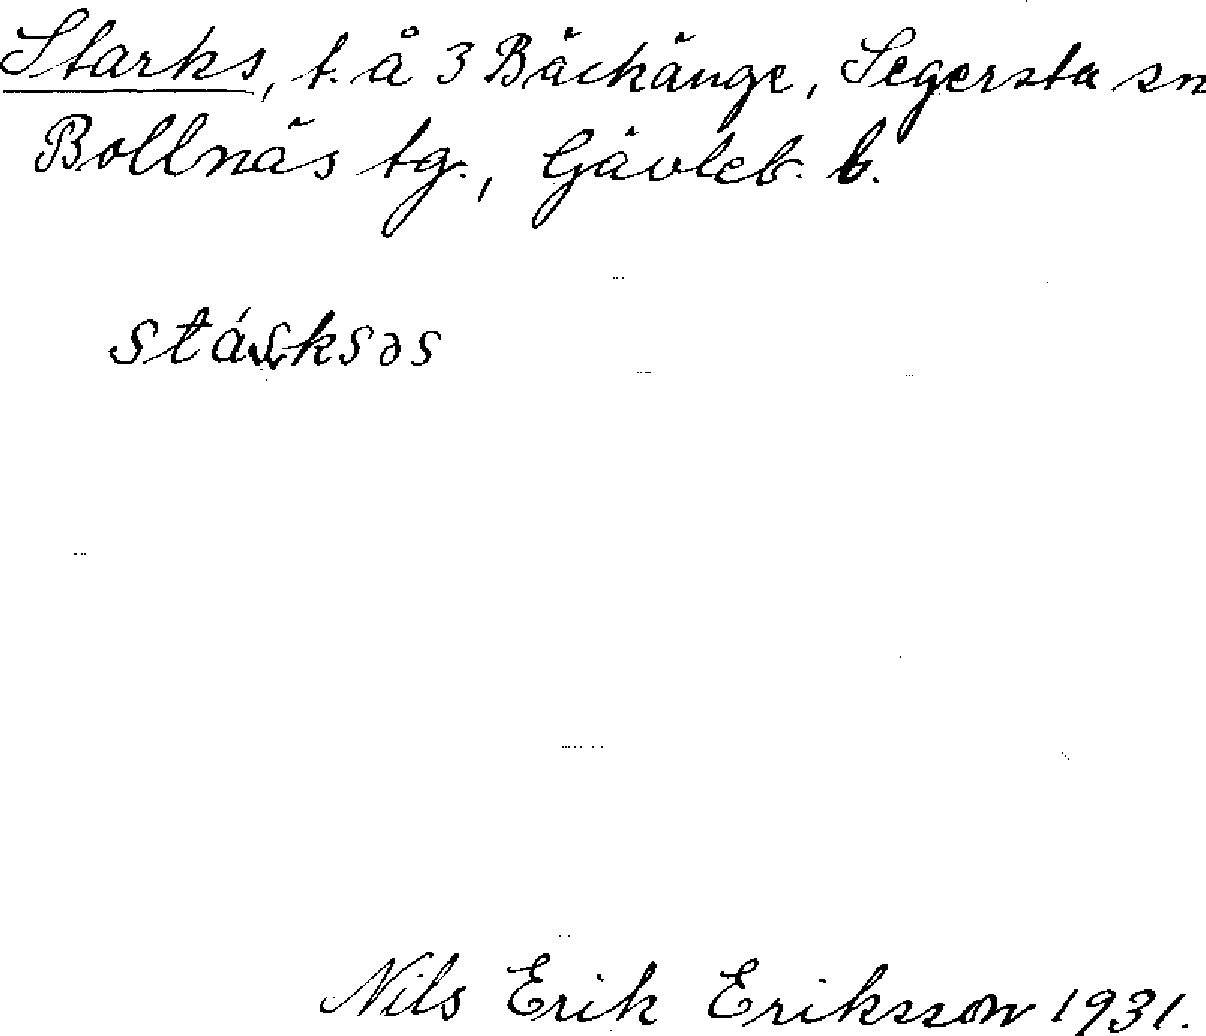 Starks, t. å 3 Bäckänge, Segersta sn
Bollnäs tg., Gävleb. l.
Nils Erik Eriksson 1931.